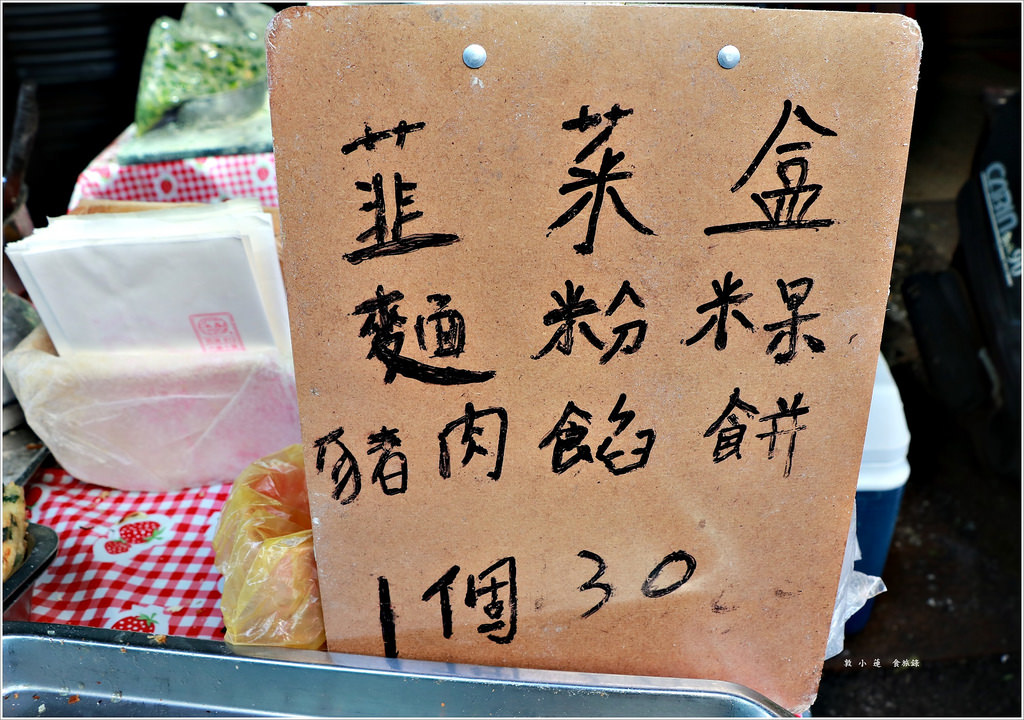 韮菜盒
麵粉粿
豬肉餡餅
1個30
敦小蓮 食旅錄